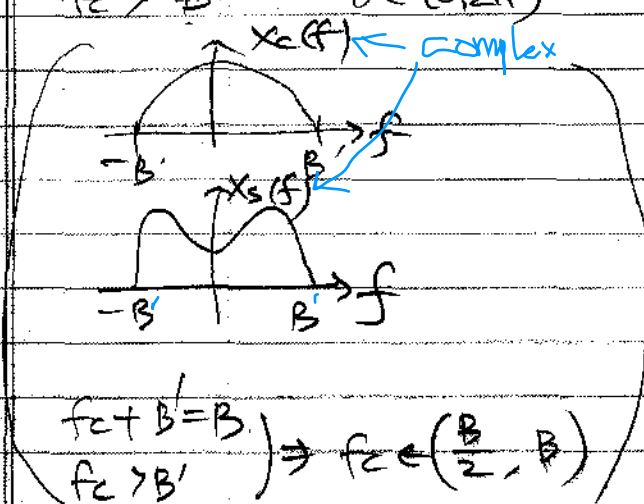 Xc(f) ← complex
-B' B' f
Xs(f)
-B' B' f
fc + B' = B
fc > B' ) ⇒ fc ∈ (B/2, B)